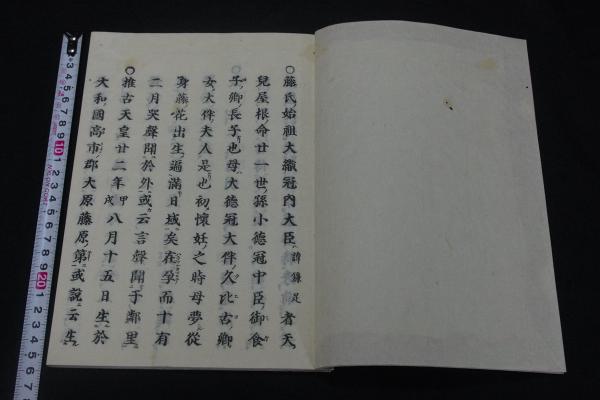 〇藤氏始祖大織冠内大臣諱鎌足者天
兒屋根命廿一世孫小徳冠中臣御食
子卿長子也母大徳冠大伴久比古卿
女大伴夫人是也初懐妊之時母夢従
身藤花出生遍滿日域矣在孕而十有
二月哭聲聞於外或云言聲聞于鄰里
〇推古天皇廿二年甲戌八月十五日生於
大和國高市郡大原藤原第或説云生
3 4 5 6 7 8 9 10 1 2 3 4 5 6 7 8 9 20 1 2 3 4 5 6